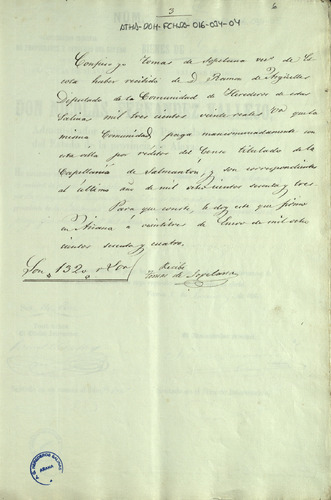 3
6
ATHA-DOH-FCHSA-016-024-04
Confieso yo Tomas de Sopelana vec.º de
haber recibido de D Ramon de Argüelles
Diputado de la Comunidad de Herederos de estas
Salinas mil tres cientos veinte reales Vn que la
misma Comunidad paga mancomunadamente con
esta villa por reditos del Censo titulado de la
Capellania de Salmanton, y son correspondientes
al último año de mil ocho cientos sesenta y tres
Para que conste, le doy este que firmo
en Añana á veintitres de Enero de mil ocho
cientos sesenta y cuatro.
Son 1320 r Von
Recibi
Tomas de Sopelana
HEREDEROS SALINAS
AÑANA